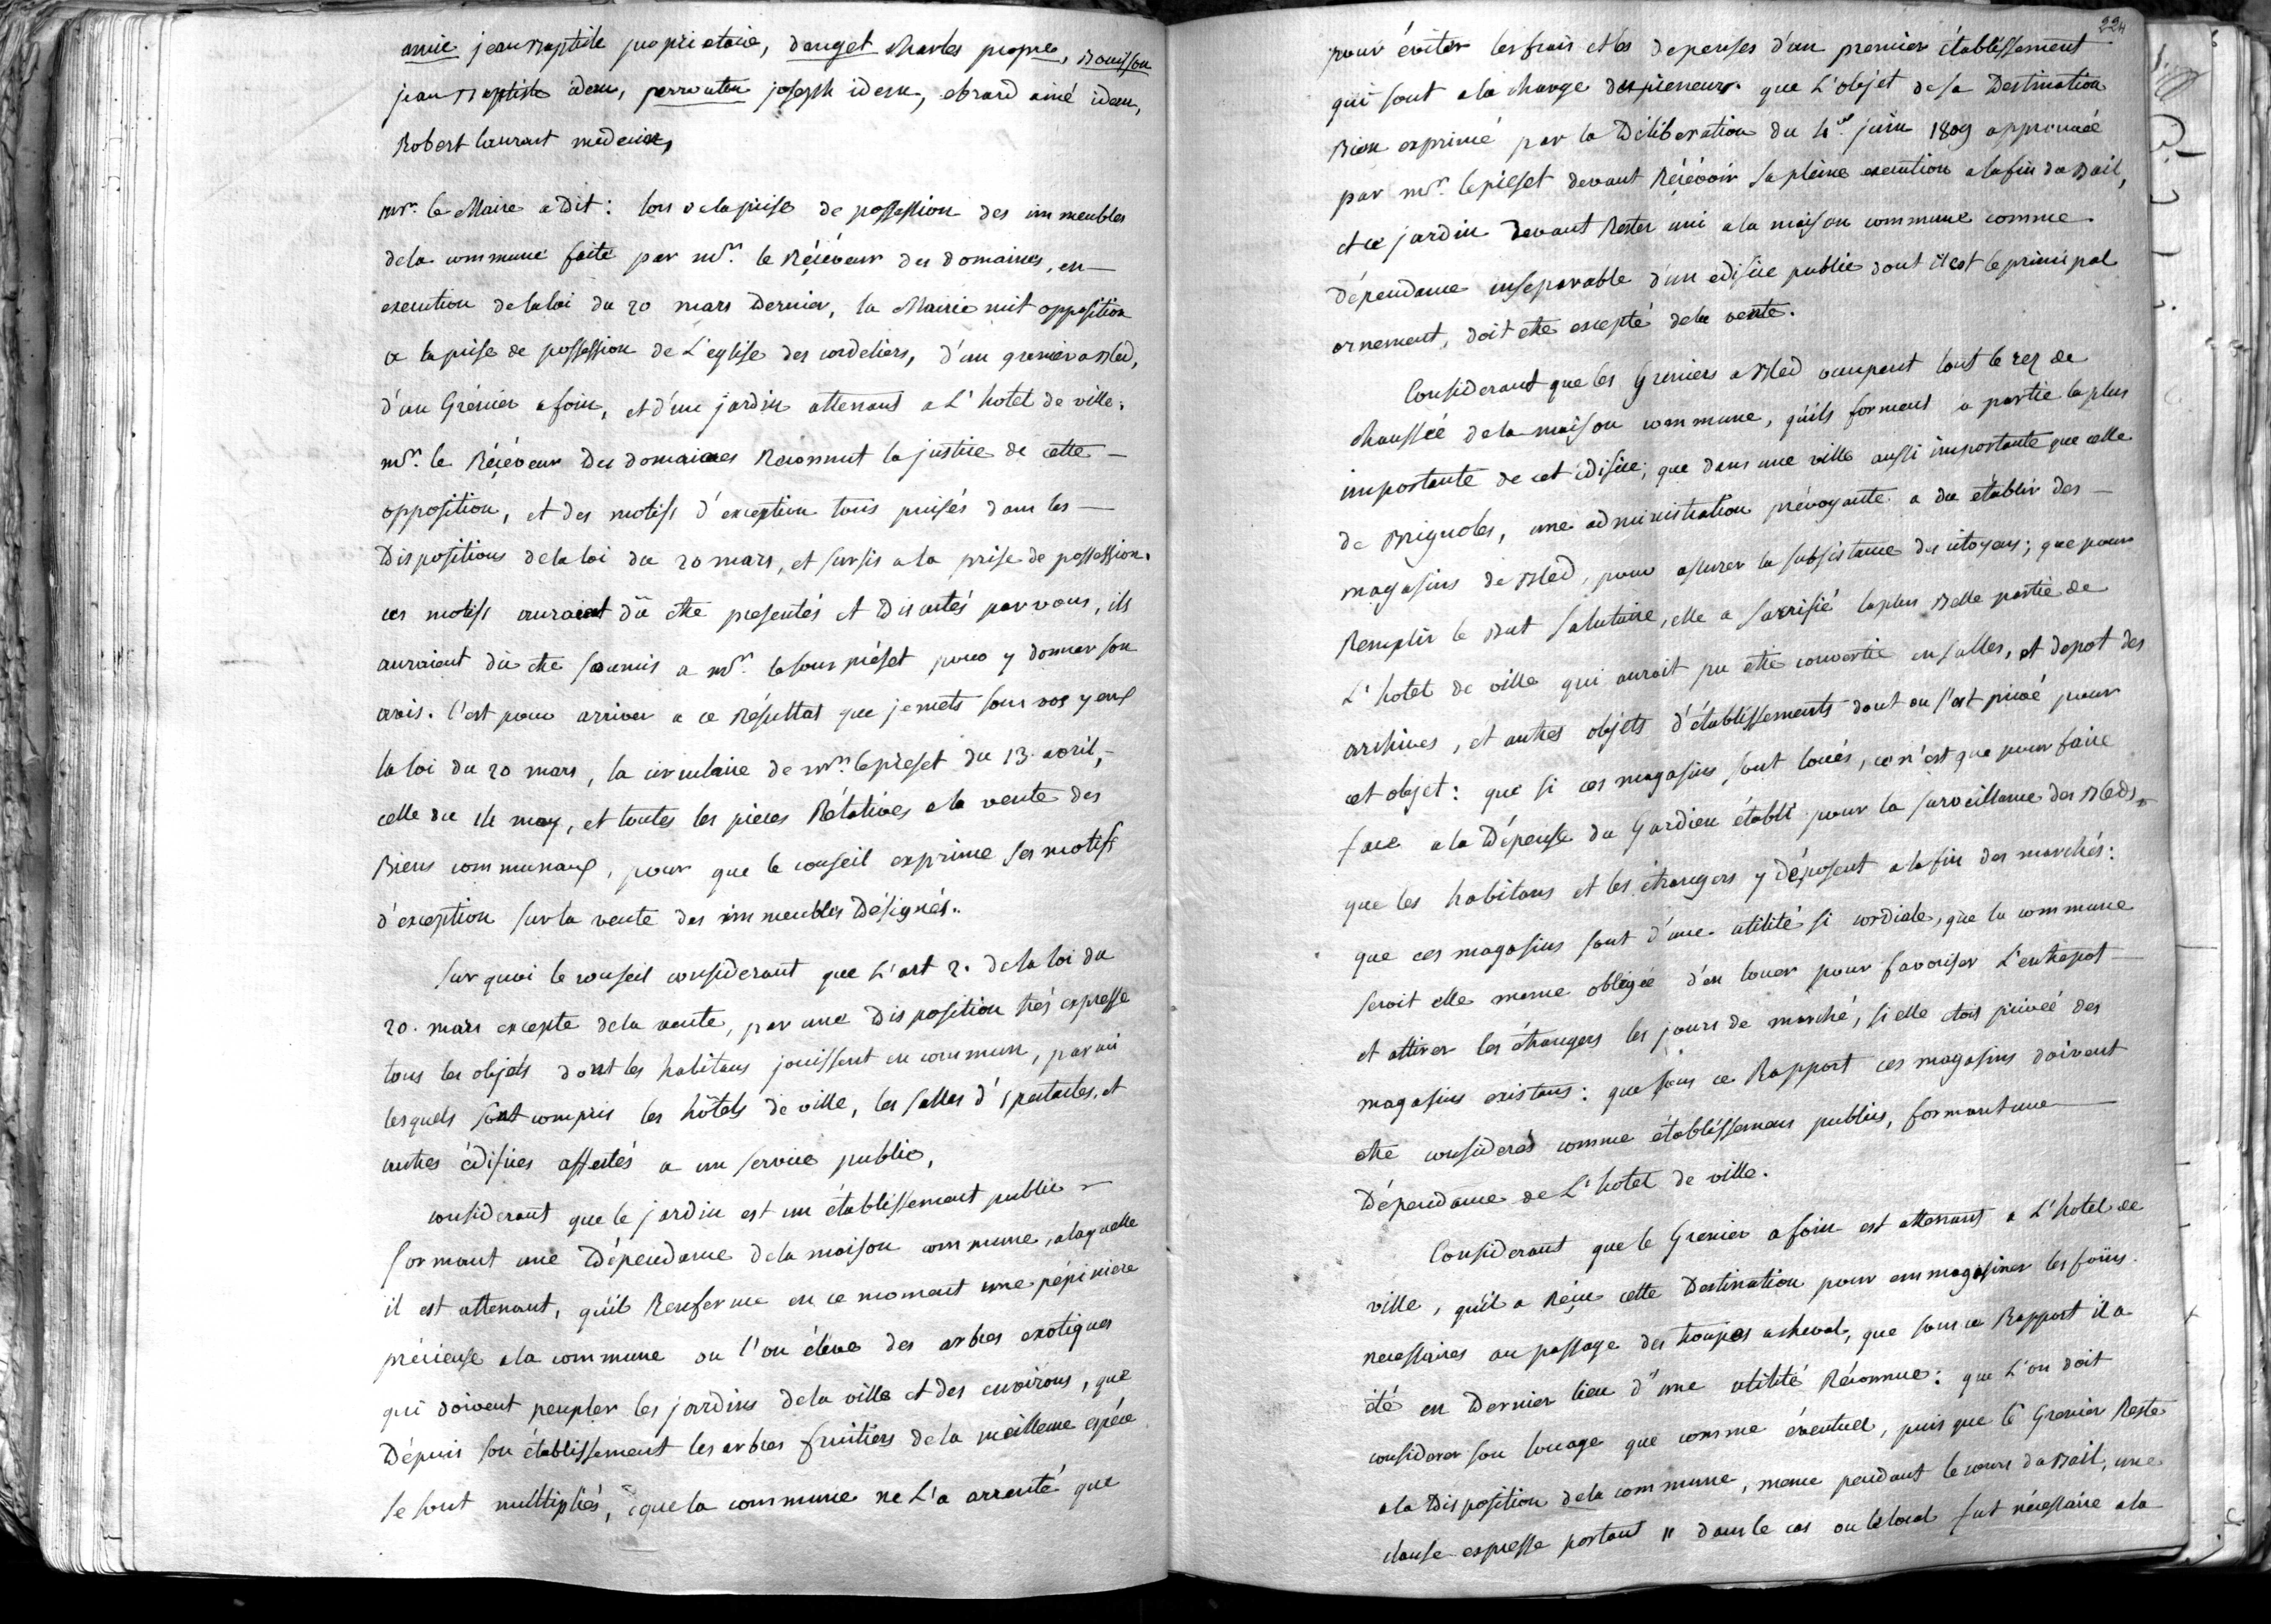 amic jean Baptiste propriétaire, dauget charles propre, Bouisson
jean Baptiste idem, idem joseph idem, ebrard ainé idem,
Robert laurant médecin,
mr. le Maire a Dit : lors de la prise de possession des immeubles
de la commune faite par mr. le Réçéveur des domaines, en
execution de la loi du 20 mars Dernier, la Mairie mit opposition
a la prise de possession de L'eglise des cordeliers, d'un grenier a Bled,
d'un Grénier a foin, et d'un jardin attenant a L'hotel de ville.
mr. le Réçéveur Des domaines Réconnut la justice de cette
opposition, et des motifs d'exception tous puisés dans les
Dispositions de la loi du 20 mars, et sursis a la prise de possession.
ces motifs auraient dû etre presentés et Discutés par vous, ils
auraient dû etre soumis a mr. le sous préfet pour y donner son
avis. C'est pour arriver a ce Résultat que je mets sous vos yeux
la loi du 20 mars, la circulaire de mr. le préfet du 13. avril,
celle du 14 may, et toutes les pieces Rélatives a la vente des
Biens communaux, pour que le conseil exprime ses motifs
d'exception sur la vente des immeubles Désignés.
Sur quoi le conseil considerant que L'art 2. de la loi du
20. mars excepte de la vente, par une Disposition trés expresse
tous les objets dont les habitans jouissent en commun, parmi
lesquels sont compris les hôtels de ville, les salles d'spectacles, et
autres édifices affectés a un service public,
considerant que le jardin est un établissement public
formant une Dépendance de la maison commune, a laquelle
il est attenant, qu'il Renferme en ce moment une pépiniere
précieuse a la commune ou l'on éléve des arbres exotiques
qui doivent peupler les jardins de la ville et des environs, que
Dépuis son établissement les arbres fruitiers de la meilleure espéce
se sont multipliés, que la commune ne L'a arrenté que
224
pour éviter les frais et les depenses d'un premier établissement
qui sont a la charge du preneur. que L'objet de sa Destination
Bien exprimé par la Déliberation du juin 1809 approuvée
par mr. le préfet devant Réçévoir sa pleine execution a la fin du Bail,
et ce jardin devant Rester uni a la maison commune comme
dépendance inséparable d'un edifice public dont il est le principal
ornement, doit etre excepté de la vente.
Considerant que les Greniers a Bled occupent tout le rez de
chaussée de la maison commune, qu'ils forment la partie la plus
importante de cet édifice, que dans une ville aussi importante que celle
de Brignoles, une administration prévoyante a du établir des
magasins de Bled, pour assurer la subsistance des citoyens ; que pour
Remplir le But salutaire, elle a sacrifié la plus Belle partie de
L'hotel de ville qui aurait pu etre convertie en salles, et depot des
archives, et autres objets d'établissements dont on s'est privé pour
cet objet : que si ces magasins sont loués, ce n'est que pour faire
face a la Dépense du Gardien établi pour la surveillance des Bleds,
que les habitans et les étrangers y déposent a la fin des marchés :
que ces magasins sont d'une utilité si cordiale, que la commune
seroit elle meme obligée d'en louer pour favoriser L'entrepot
et attirer les étrangers les jours de marché, si elle etois privée des
magasins existans : que sous ce Rapport ces magasins doivent
etre considerés comme établissemens publics, formant une
Dépendance de L'hotel de ville.
Considerant que le Grenier a foin est attenant a L'hotel de
ville, qu'il a Réçu cette Destination pour emmagasiner les foins
necessaires au passage des troupes a cheval, que sous ce Rapport il a
été en Dernier lieu d'une utilité Réconnue : que L'on doit
considerer son louage que comme éventuel, puis que le Grenier Reste
a la Disposition de la commune, meme pendant le cours du Bail, une
clause expresse portant " dans le cas ou le local fut nécessaire a la